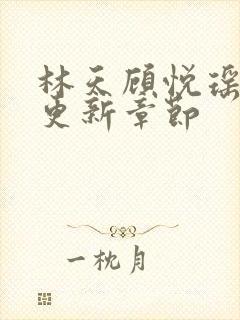 林天顾悦瑶
更新章节
一枕月